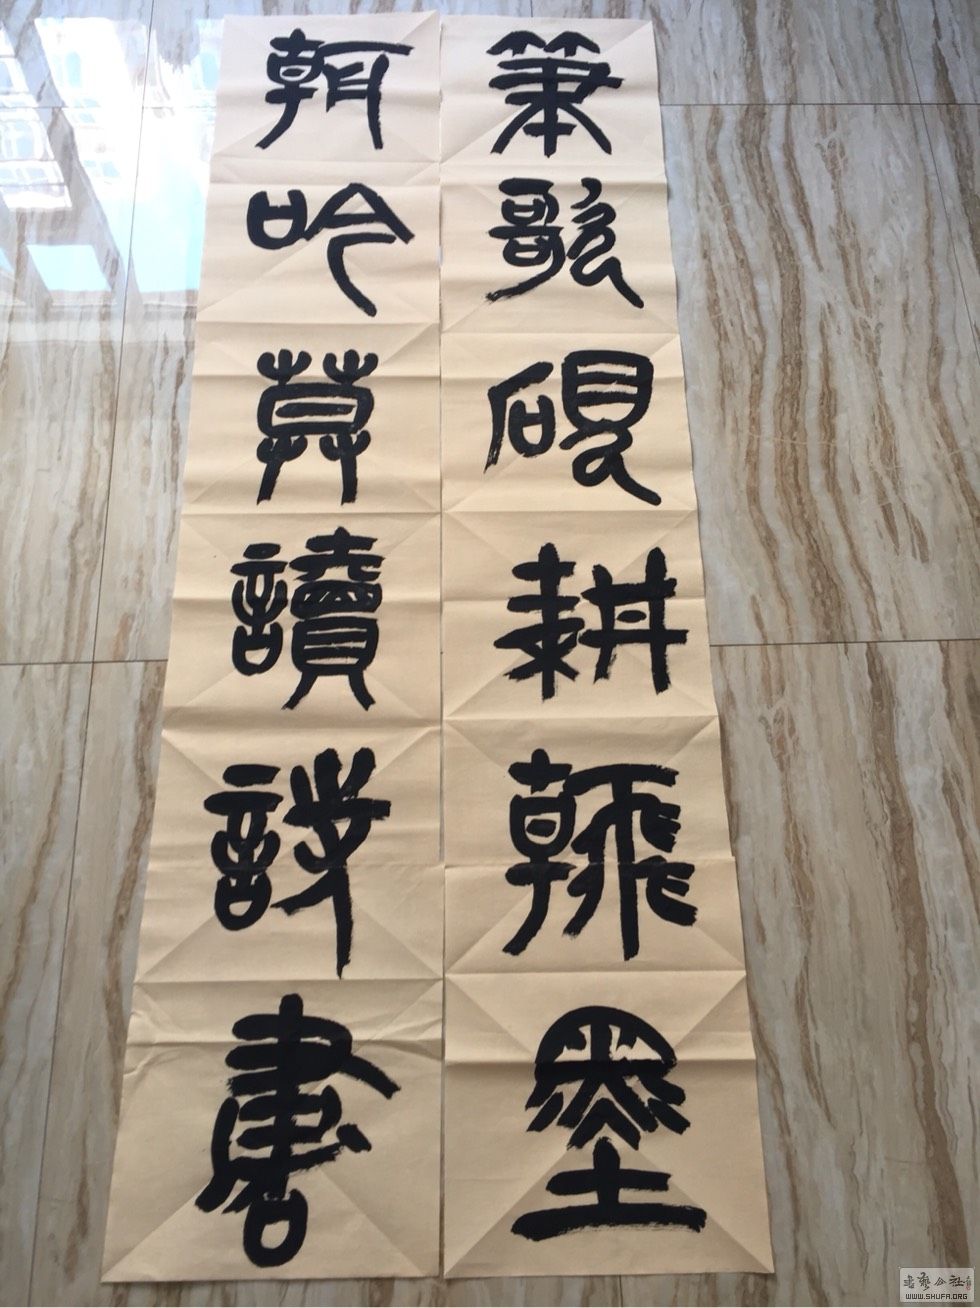 筆歌硯耕翰墨
朝吟莫讀詩書
書藝公社
WWW.SHUFA.ORG